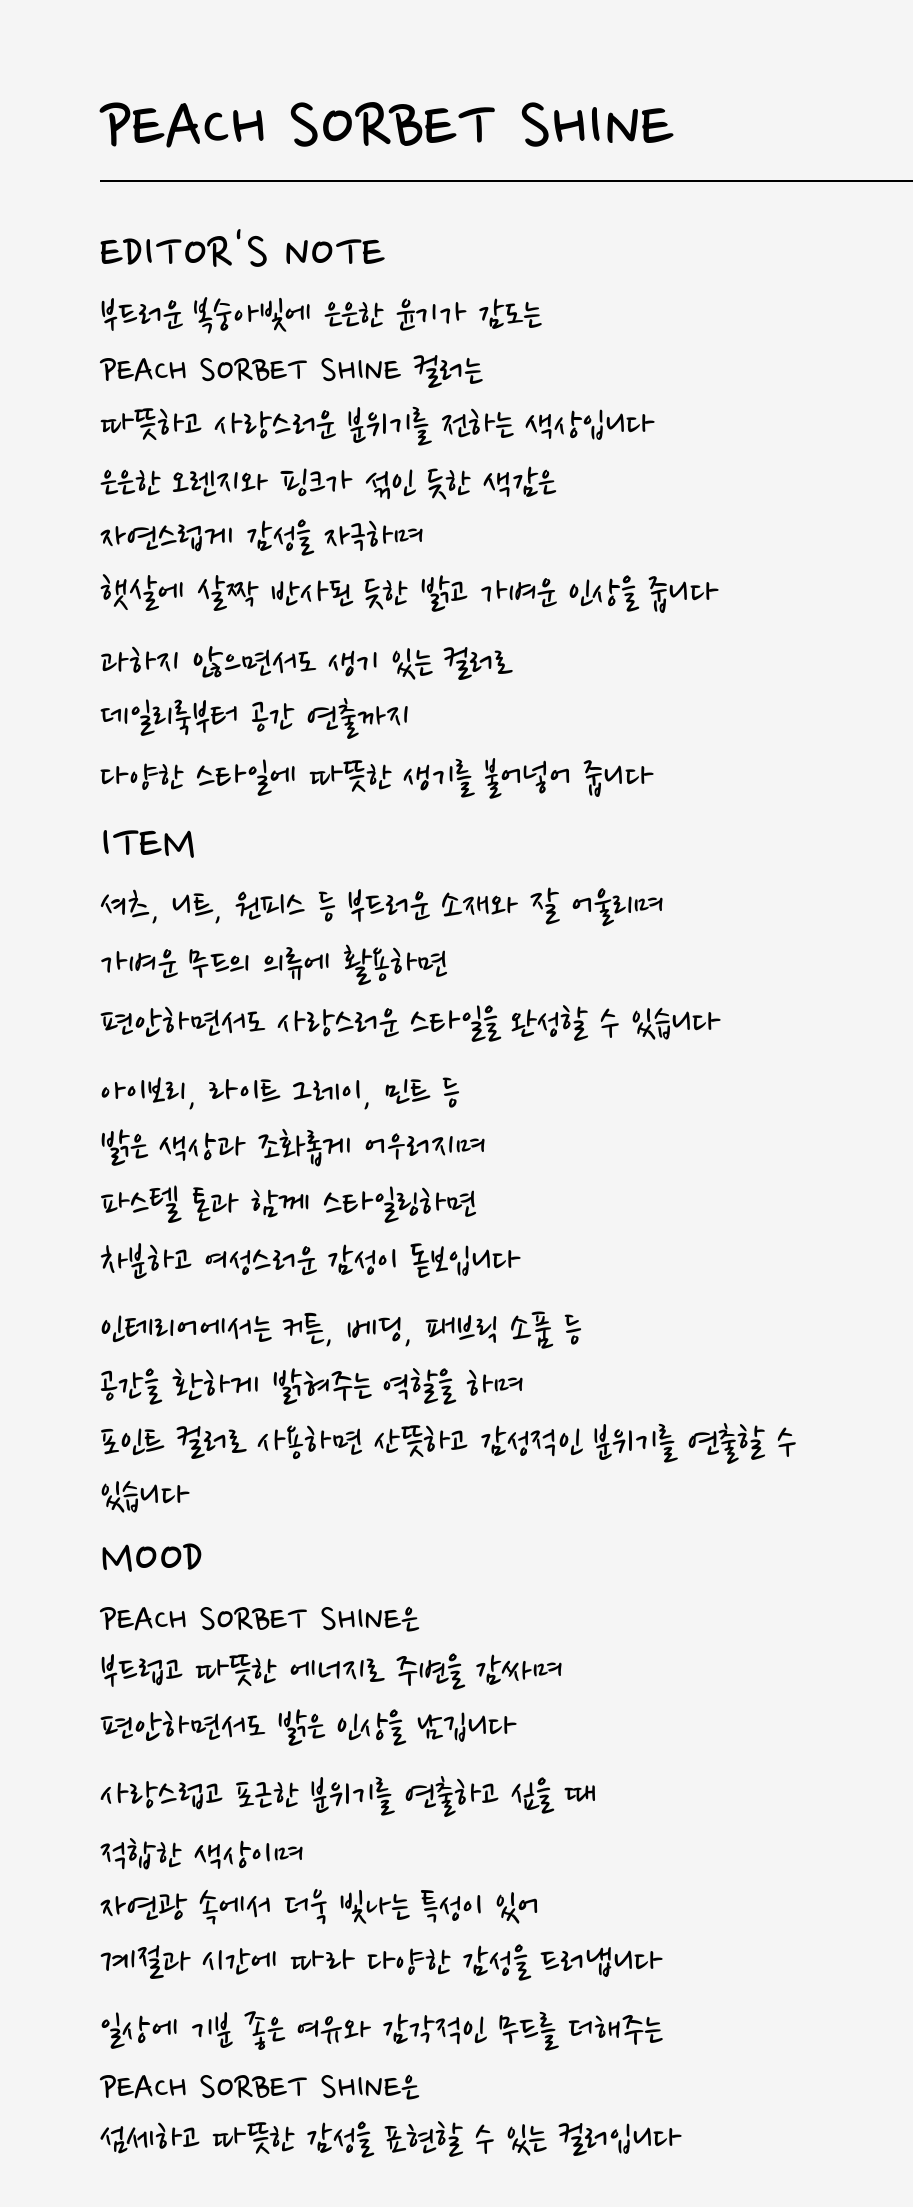 PEACH SORBET SHINE
EDITOR'S NOTE
부드러운 복숭아빛에 은은한 윤기가 감도는
PEACH SORBET SHINE 컬러는
따뜻하고 사랑스러운 분위기를 전하는 색상입니다
은은한 오렌지와 핑크가 섞인 듯한 색감은
자연스럽게 감성을 자극하며
햇살에 살짝 반사된 듯한 밝고 가벼운 인상을 줍니다
과하지 않으면서도 생기 있는 컬러로
데일리룩부터 공간 연출까지
다양한 스타일에 따뜻한 생기를 불어넣어 줍니다
ITEM
셔츠, 니트, 원피스 등 부드러운 소재와 잘 어울리며
가벼운 무드의 의류에 활용하면
편안하면서도 사랑스러운 스타일을 완성할 수 있습니다
아이보리, 라이트 그레이, 민트 등
밝은 색상과 조화롭게 어우러지며
파스텔 톤과 함께 스타일링하면
차분하고 여성스러운 감성이 돋보입니다
인테리어에서는 커튼, 베딩, 패브릭 소품 등
공간을 환하게 밝혀주는 역할을 하며
포인트 컬러로 사용하면 산뜻하고 감성적인 분위기를 연출할 수
있습니다
MOOD
PEACH SORBET SHINE은
부드럽고 따뜻한 에너지로 주변을 감싸며
편안하면서도 밝은 인상을 남깁니다
사랑스럽고 포근한 분위기를 연출하고 싶을 때
적합한 색상이며
자연광 속에서 더욱 빛나는 특성이 있어
계절과 시간에 따라 다양한 감성을 드러냅니다
일상에 기분 좋은 여유와 감각적인 무드를 더해주는
PEACH SORBET SHINE은
섬세하고 따뜻한 감성을 표현할 수 있는 컬러입니다